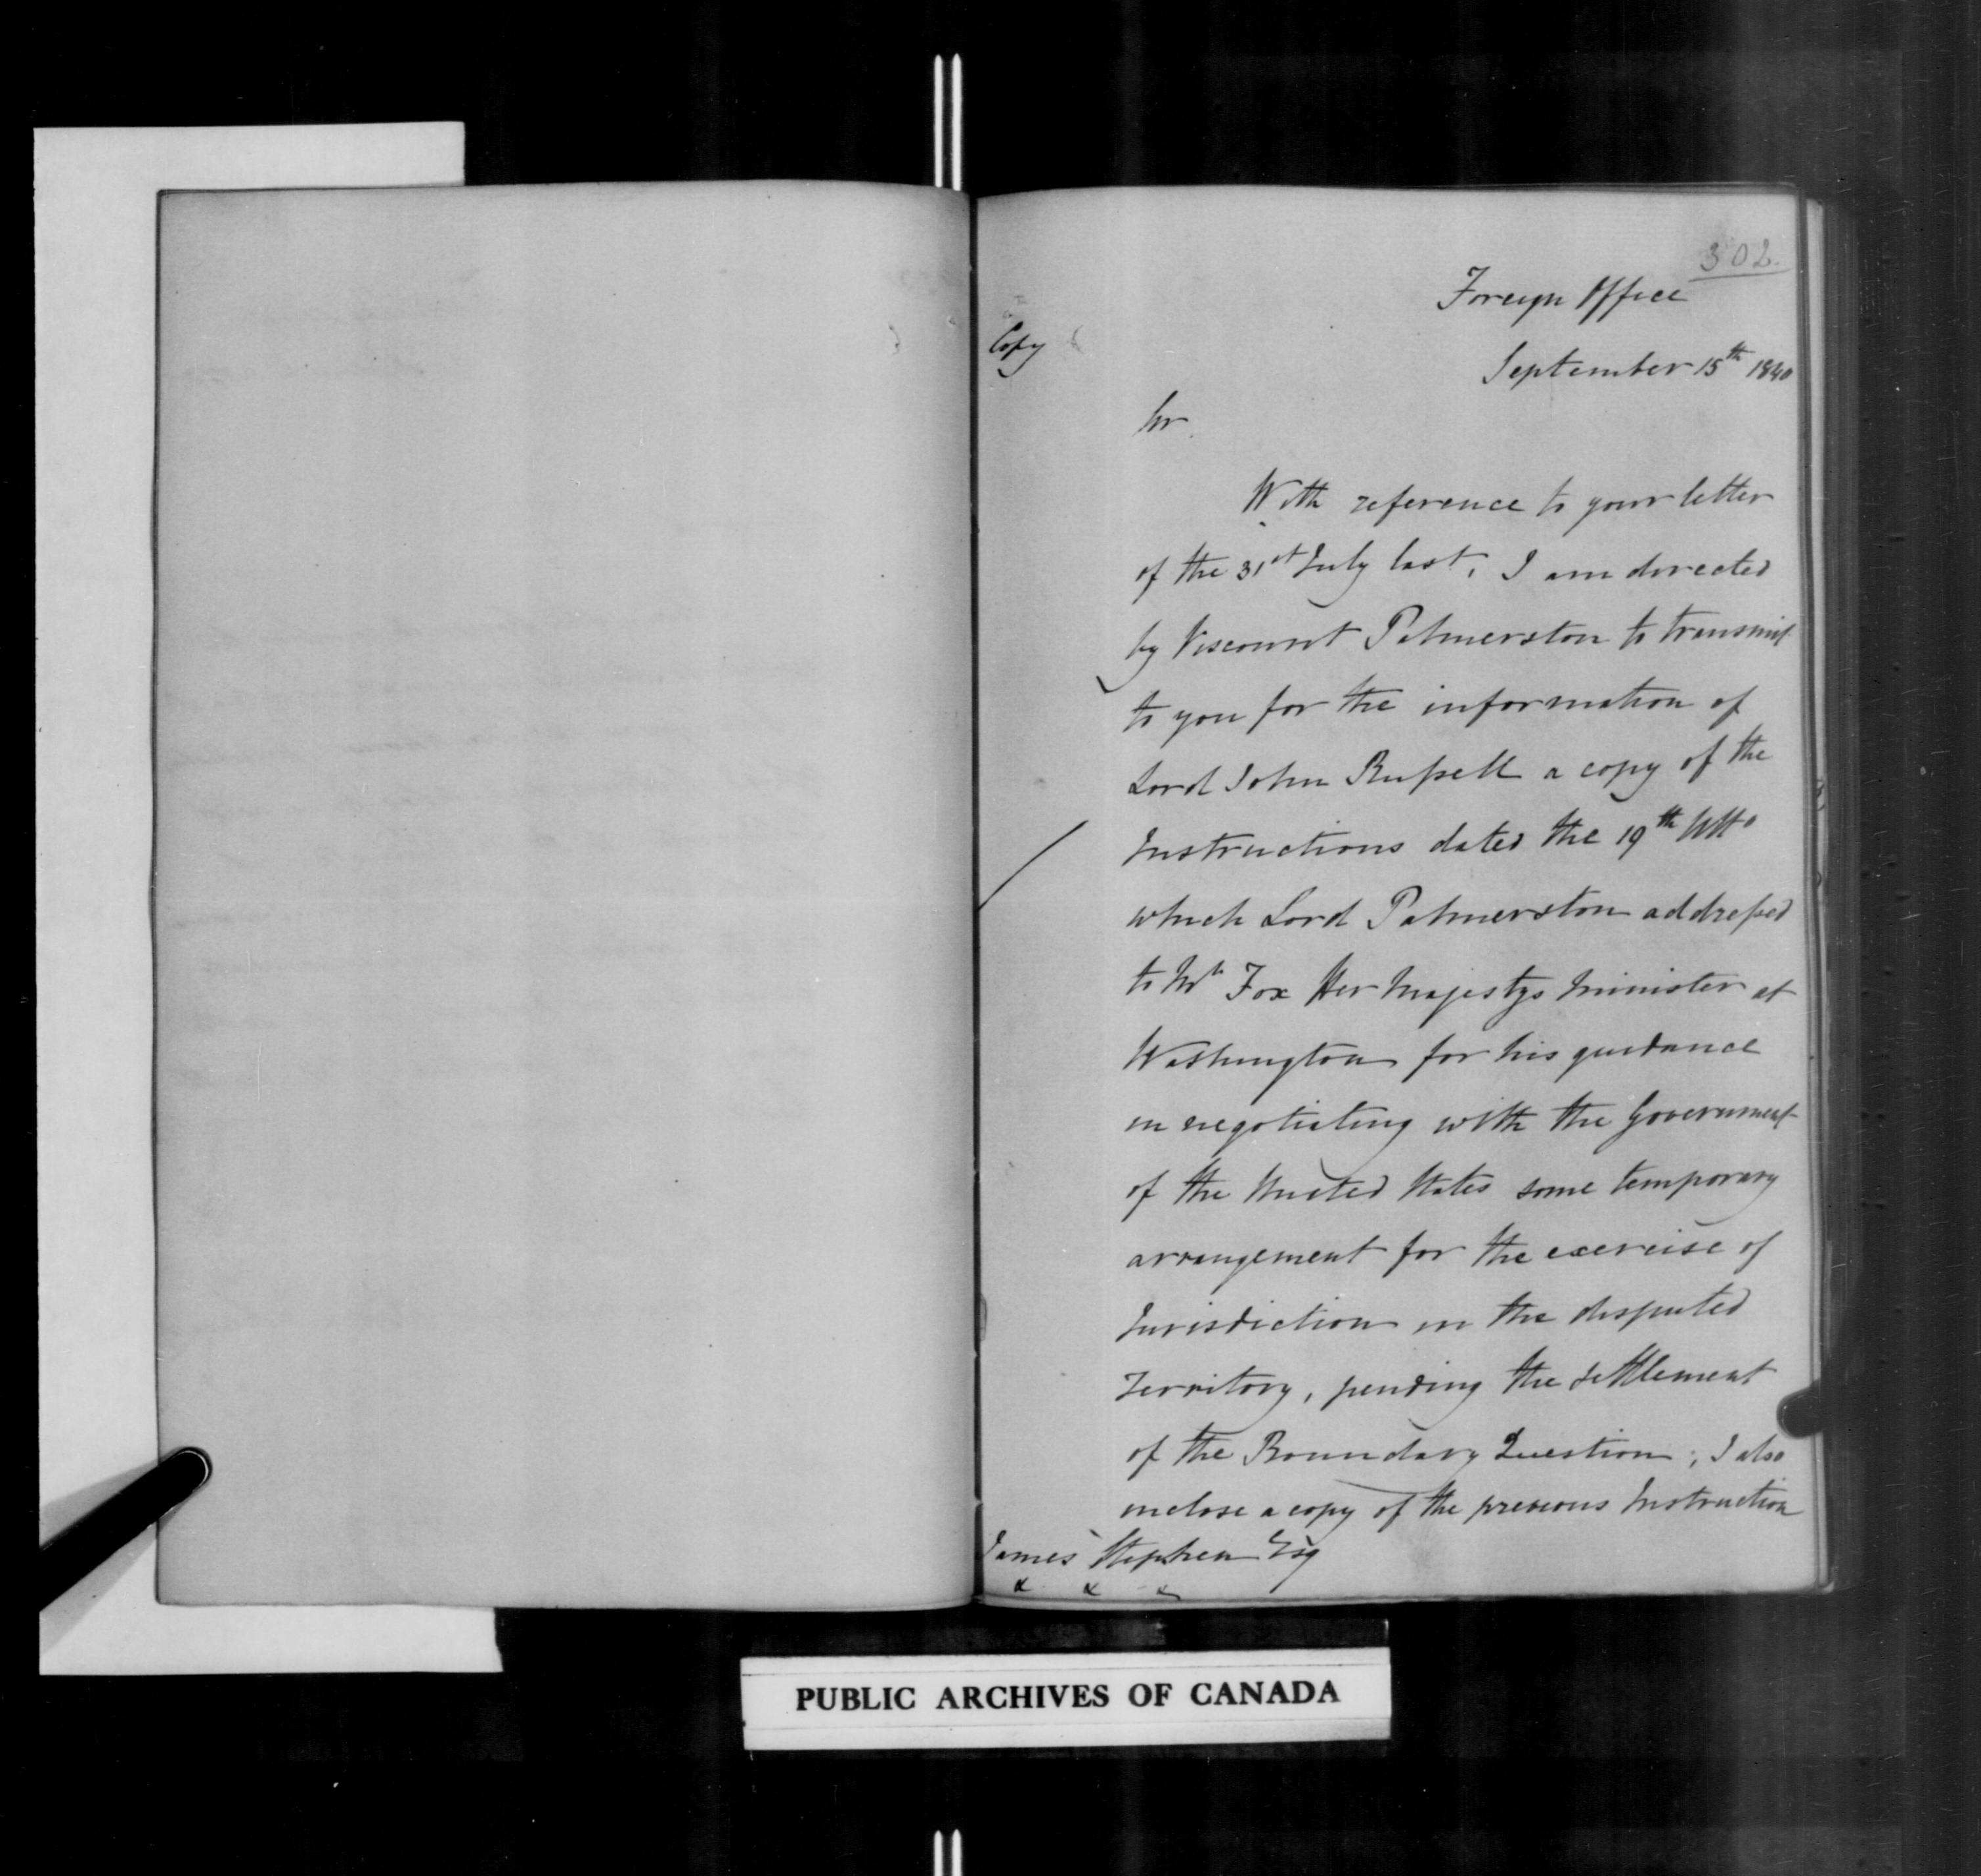 302.
Foreign Office
September 15th 1840
Copy
Sir
With reference to your letter
of the 31st July last, I am directed
by Viscount Palmerston to transmit
to you for the information of
Lord John Russell a copy of the
Instructions dated the 19th Ulto
which Lord Palmerston addressed
to Mr Fox Her Majestys Minister at
Washington for his guidance
in negotiating with the Government
of the United States some temporary
arrangement for the exercise of
Jurisdiction in the disputed
Territory, pending the settlement
of the Boundary Question; I also
inclose a copy of the previous Instruction
James Stephen Esq
x x x
PUBLIC ARCHIVES OF CANADA